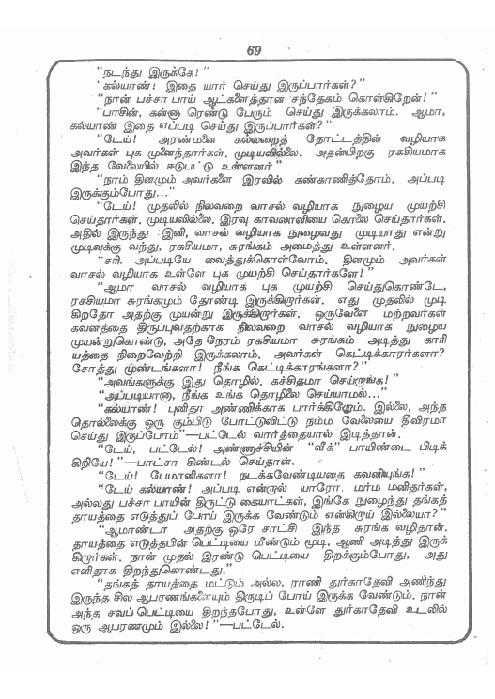 69
“நடந்து இருக்கே!”
“கல்யாண்! இதை யார் செய்து இருப்பார்கள்?”
“நான் பச்சா பாய் ஆட்களைத்தான் சந்தேகம் கொள்கிறேன்!”
“பாசின், கன்னா ரெண்டு பேரும் செய்து இருக்கலாம். ஆமா,
கல்யாண் இதை எப்படி செய்து இருப்பார்கள்?”
“டேய்! அரண்மனை கல்லறைத் தோட்டத்தின் வழியாக
அவர்கள் புக முனைந்தார்கள். முடியவில்லை. அதன்பிறகு ரகசியமாக
இந்த வேலையில் ஈடுபட்டு உள்ளனர்”
“நாம் தினமும் அவர்களை இரவில் கண்காணித்தோம். அப்படி
இருக்கும்போது...”
“டேய்! முதலில் நிலவறை வாசல் வழியாக நுழைய முயற்சி
செய்தார்கள். முடியவில்லை. இரவு காவலாளியை கொலை செய்தார்கள்.
அதில் இருந்து இனி, வாசல் வழியாக நுழைவது முடியாது என்று
முடிவுக்கு வந்து, ரகசியமா, சுரங்கம் அமைத்து உள்ளனர்.
“சரி. அப்படியே வைத்துக்கொள்வோம். தினமும் அவர்கள்
வாசல் வழியாக உள்ளே புக முயற்சி செய்தார்களே!”
“ஆமா வாசல் வழியாக புக முயற்சி செய்துகொண்டே,
ரகசியமா சுரங்கமும் தோண்டி இருக்கிறார்கள். எது முதலில் முடி
கிறதோ அதற்கு முயன்று இருக்கிறார்கள். ஒருவேளை மற்றவர்கள்
கவனத்தை திருப்புவதற்காக நிலவறை வாசல் வழியாக நுழைய
முயன்றுகொண்டு, அதே நேரம் ரகசியமா சுரங்கம் அடித்து காரி
யத்தை நிறைவேற்றி இருக்கலாம். அவர்கள் கெட்டிக்காரர்களா?
சோத்து முண்டங்களா! நீங்க கெட்டிக்காரங்களா?”
“அவங்களுக்கு இது தொழில். கச்சிதமா செய்றாங்க!”
“அப்படியானா, நீங்க உங்க தொழிலை செய்யாமல்...”
“கல்யாண்! புனிதா அண்ணிக்காக பார்க்கிறோம். இல்லை, அந்த
தொல்லைக்கு ஒரு கும்பிடு போட்டுவிட்டு நம்ம வேலையை தீவிரமா
செய்து இருப்போம்”—பட்டேல் வார்த்தையால் இடித்தான்.
“டேய், பட்டேல்! அண்ணாச்சியின் “வீக்” பாயிண்டை பிடிக்
கிறியே!”—பாட்சா கிண்டல் செய்தான்.
“டேய்! பேமானிகளா! நடக்கவேண்டியதை கவனியுங்க!”
“டேய் கல்யாண்! அப்படி என்றால் யாரோ, மர்ம மனிதர்கள்,
அல்லது பச்சா பாயின் திருட்டு கையாட்கள், இங்கே நுழைந்து தங்கத்
தாயத்தை எடுத்துப் போய் இருக்க வேண்டும் என்கிறாய் இல்லையா?”
“ஆமாண்டா அதற்கு ஒரே சாட்சி இந்த சுரங்க வழிதான்.
தாயத்தை எடுத்தபின் பெட்டியை மீண்டும் மூடி, ஆணி அடித்து இருக்
கிறார்கள். நான் முதல் இரண்டு பெட்டியை திறக்கும்போது, அது
எளிதாக திறந்துகொண்டது.”
“தங்கத் தாயத்தை மட்டும் அல்ல, ராணி துர்காதேவி அணிந்து
இருந்த சில ஆபரணங்களையும் திருடிப் போய் இருக்க வேண்டும். நான்
அந்த சவப் பெட்டியை திறந்தபோது, உள்ளே துர்காதேவி உடலில்
ஒரு ஆபரணமும் இல்லை!”—பட்டேல்.